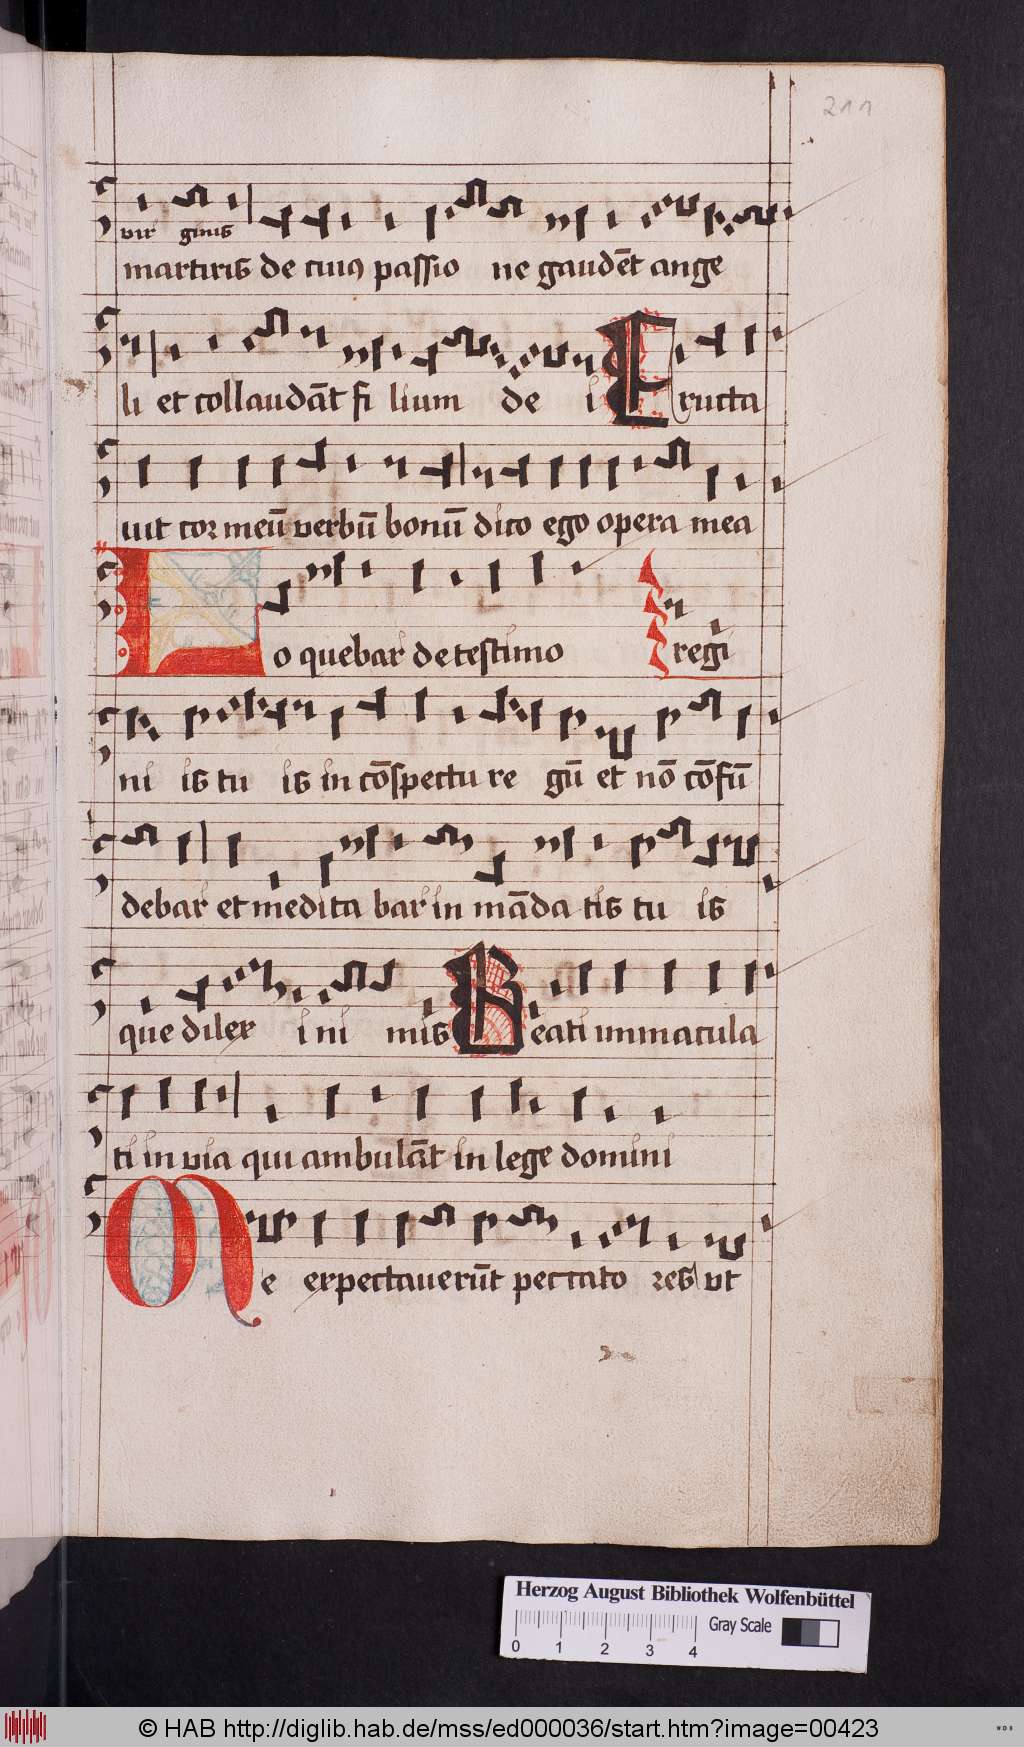 211
vir ginis
martiris de cuiꝯ passio ne gaudēt ange
li et collaudāt fi lium de i Eructa
uit cor meū verbū bonū dico ego opera mea
Lo quebar de testimo regi
ni is tu is in cōspectu re gū et nō cōfū
debar et medita bar in māda tis tu is
que dilex i ni mis Beati immacula
ti in via qui ambulāt in lege domini
Me expectauerūt peccato res vt
Herzog August Bibliothek Wolfenbüttel
0 1 2 3 4 Gray Scale
© HAB http://diglib.hab.de/mss/ed000036/start.htm?image=00423